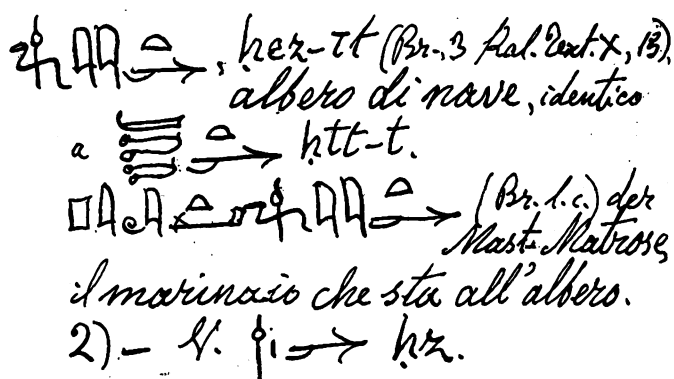 , ḥez-tt (Br., 3 Kal. Text. X, 15),
albero di nave, identico
a ḥtt-t.
(Br. l. c.) der
Mast-Matrose,
il marinaio che sta all'albero.
2) — V. ḥz.